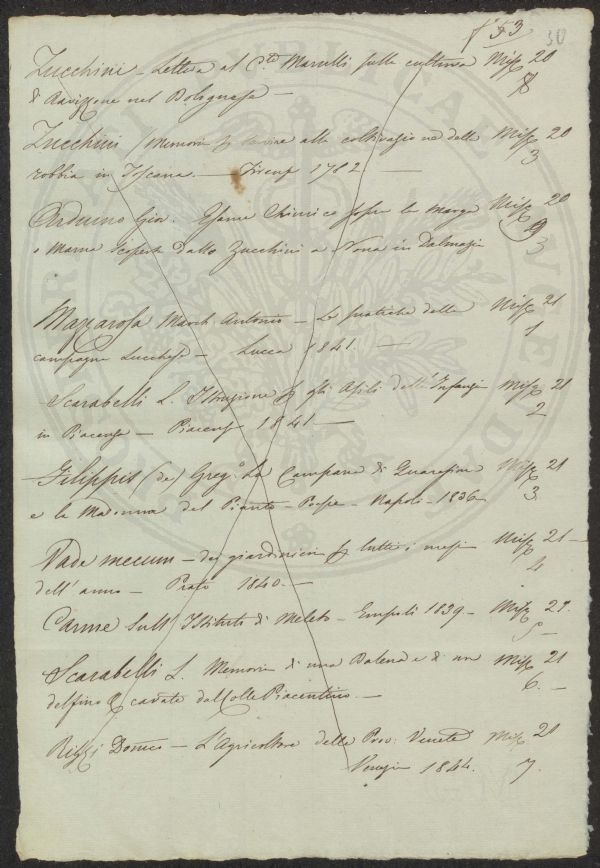 f° 53 50
Zucchini - Lettera al C.te Marulli sulla cultura Misc 20
di Ravizzone nel Bolognese - 8
Zucchini / Memoria p servire alla coltivazione della Misc 20
robbia in Toscana. - Firenze 1782 - 3
Arduino Gio. Esame Chimico sopra la Marga Misc 20
o Marna scoperta dallo Zucchini a Nona in Dalmazia 3
Mazzarosa March. Antonio - Le pratiche della Misc 21
campagna Lucchese - Lucca 1841. - 1
Scarabelli L. Istruzione p gli Asili dell'Infanzia Misc 21
in Piacenza - Piacenza 1841 - 2
Filippis (de) Greg.o La Campana di Quaresima Misc 21
e la Madonna del Pianto - Poesie - Napoli - 1836 - 3.
Vade mecum - dei giardinieri p tutti i mesi Misc 21 -
dell'anno - Prato 1840. - 4
Carme sull'Istituto di Meleto - Empoli 1839 - Misc 21.
5 -
Scarabelli L. Memoria di una Balena e di un Misc 21
delfino escavate dal Colle Piacentino. - 6. -
Rizzi Domco - L'Agricoltore delle Prov: Venete Misc 21
Venezia 1844. 7.